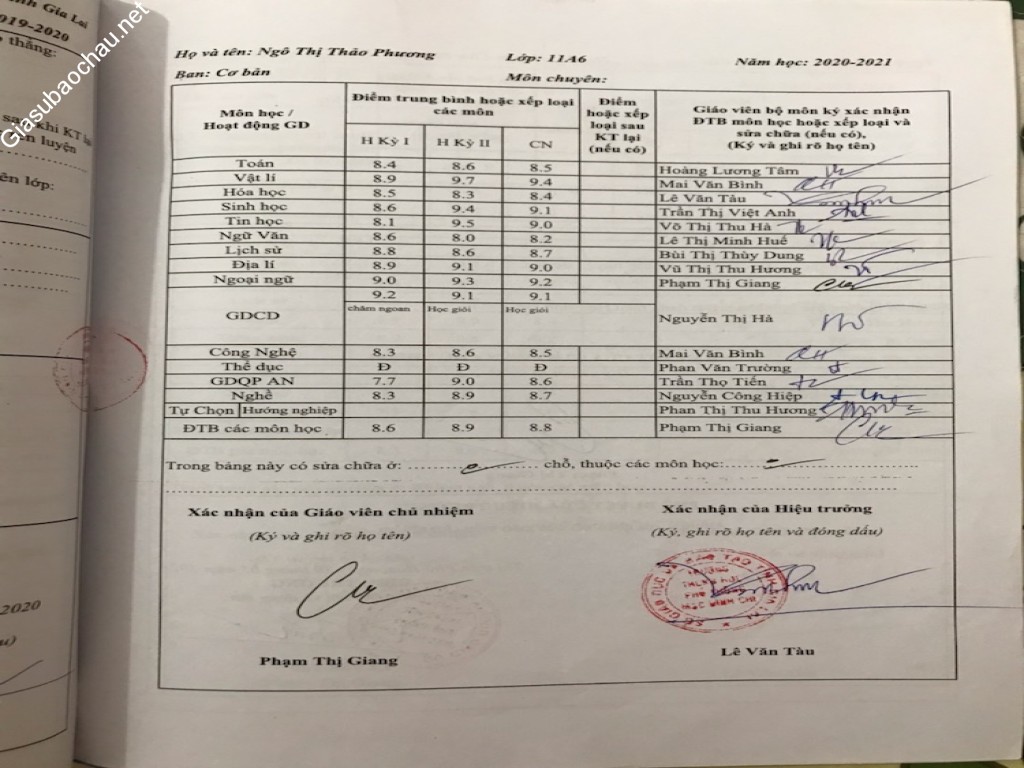 nh Gia Lai
019-2020
thẳng:
khi KT lại
n luyện
ên lớp:
2020
Giasubaochau.net
Họ và tên: Ngô Thị Thảo Phương Lớp: 11A6 Năm học: 2020-2021
Ban: Cơ bản Môn chuyên:
Môn học / Hoạt động GD Điểm trung bình hoặc xếp loại các môn Điểm hoặc xếp loại sau KT lại (nếu có) Giáo viên bộ môn ký xác nhận ĐTB môn học hoặc xếp loại và sửa chữa (nếu có), (Ký và ghi rõ họ tên)
H Kỳ I H Kỳ II CN
Toán 8.4 8.6 8.5 Hoàng Lương Tâm
Vật lí 8.9 9.7 9.4 Mai Văn Bình
Hóa học 8.5 8.3 8.4 Lê Văn Tàu
Sinh học 8.6 9.4 9.1 Trần Thị Việt Anh
Tin học 8.1 9.5 9.0 Võ Thị Thu Hà
Ngữ Văn 8.6 8.0 8.2 Lê Thị Minh Huế
Lịch sử 8.8 8.6 8.7 Bùi Thị Thùy Dung
Địa lí 8.9 9.1 9.0 Vũ Thị Thu Hương
Ngoại ngữ 9.0 9.3 9.2 Phạm Thị Giang
9.2 9.1 9.1
GDCD chăm ngoan Học giỏi Học giỏi Nguyễn Thị Hà
Công Nghệ 8.3 8.6 8.5 Mai Văn Bình
Thể dục Đ Đ Đ Phan Văn Trường
GDQP AN 7.7 9.0 8.6 Trần Thọ Tiến
Nghề 8.3 8.9 8.7 Nguyễn Công Hiệp
Tự Chọn Hướng nghiệp Phan Thị Thu Hương
ĐTB các môn học 8.6 8.9 8.8 Phạm Thị Giang
Trong bảng này có sửa chữa ở: chỗ, thuộc các môn học:
Xác nhận của Giáo viên chủ nhiệm Xác nhận của Hiệu trưởng
(Ký và ghi rõ họ tên) (Ký, ghi rõ họ tên và đóng dấu)
Phạm Thị Giang Lê Văn Tàu